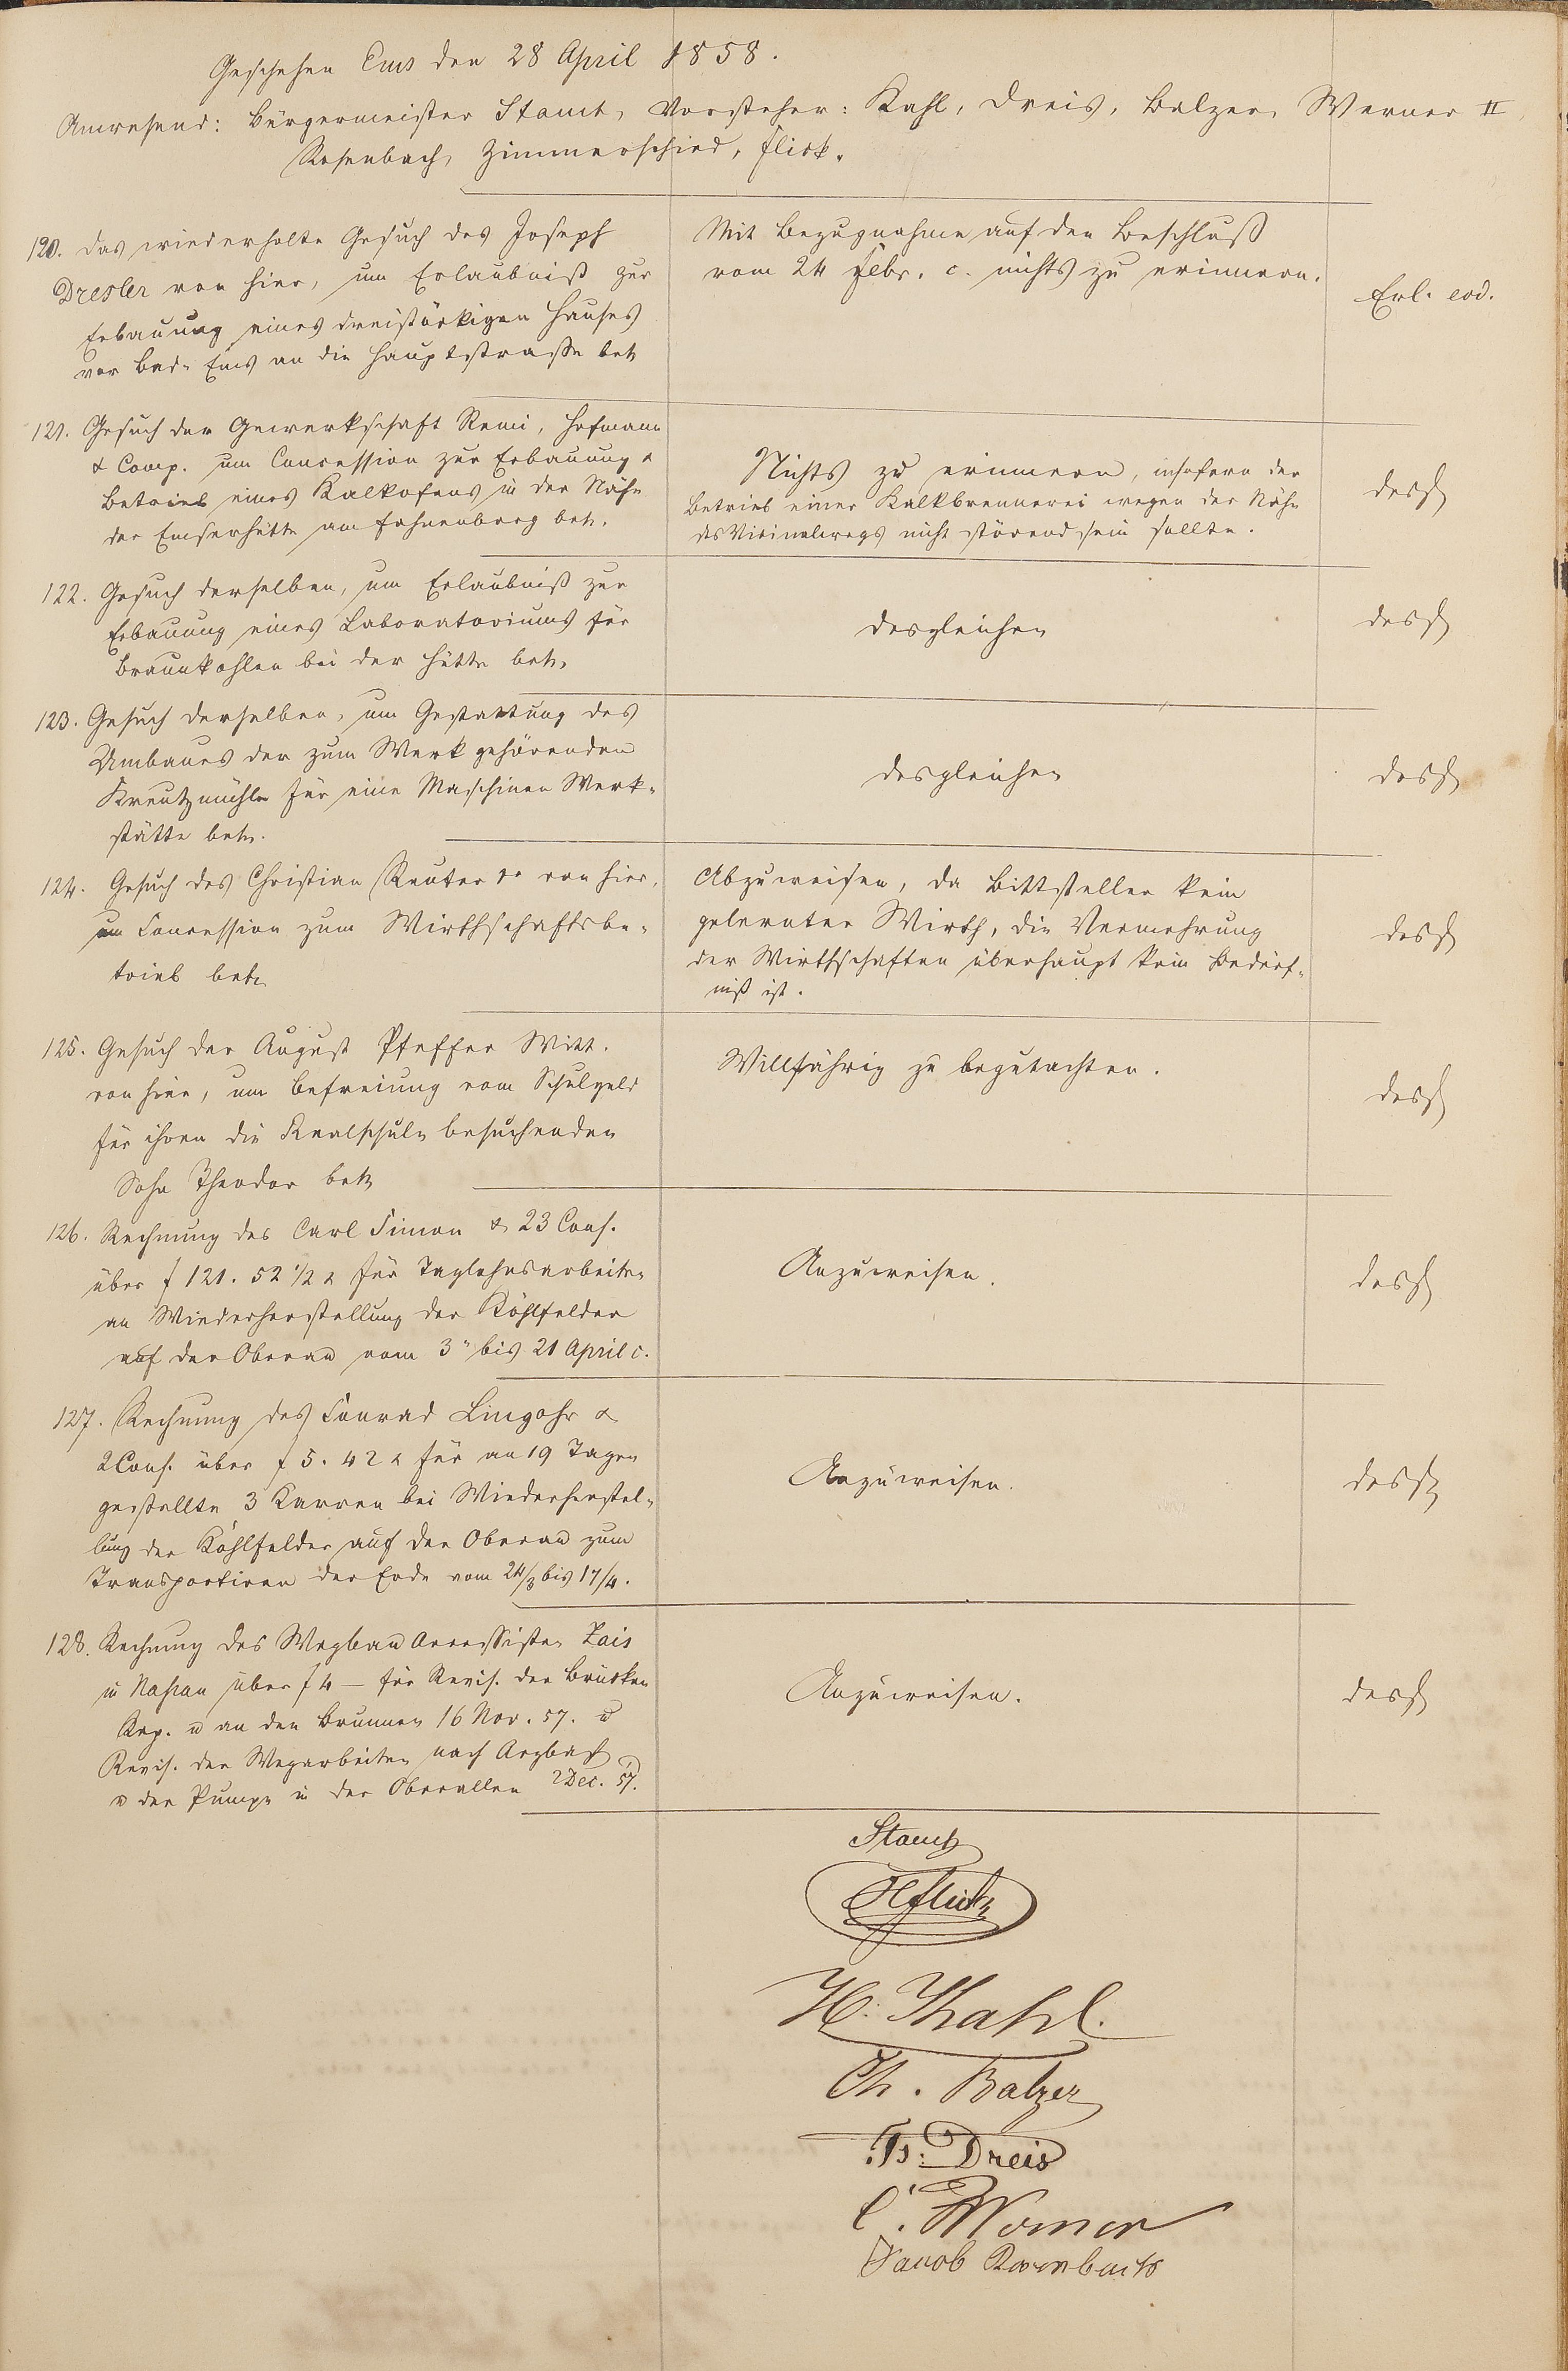 Geschehen Ems den 28 April 1858.
Anwesend: Bürgermeister Stamt, Vorsteher: Kahl, Dreis, Balzer, Werner II,
Rosenbach, Zimmerschied, Flick.
120. Das wiederholte Gesuch des Joseph
Dresler von hier, um Erlaubniß zur
Erbauung eines dreistöckigen Hauses
vor Bad-Ems an die Hauptstrasse betr
Mit Bezugnahme auf den Beschluß
vom 24 Febr. c. nichts zu erinnern.
Erl. eod.
121. Gesuch der Gewerkschaft Remi, Hofmann
& Comp. um Concession zur Erbauung &
Betrieb eines Kalkofens in der Nähe
der Emserhütte am Fahnenberg betr.
Nichts zu erinnern, insofern der
Betrieb einer Kalkbrennerei wegen der Nähe
des Vicinalwegs nicht störend sein sollte.
desgl
122. Gesuch derselben, um Erlaubniß zur
Erbauung eines Laboratoriums für
Braunkohlen bei der Hütte betr.
desgleichen
desgl
123. Gesuch derselben, um Gestattung des
Umbaues der zum Werk gehörenden
Kreutzmühle für eine Maschinen Werk-
stätte betr.
desgleichen
desgl
124. Gesuch des Christian Reuter 1r von hier,
um Concession zum Wirthschaftsbe-
trieb betr
Abzuweisen, da Bittsteller kein
gelernter Wirth, die Vermehrung
der Wirthschaften überhaupt kein Bedürf-
niß ist.
desgl
125. Gesuch der August Pfeffer Witt.
von hier, um Befreiung vom Schulgeld
für ihren die Realschule besuchenden
Sohn Theodor betr
Willfährig zu begutachten.
desgl
126. Rechnung des Carl Simon & 23 Cons.
über f 121. 52 1/2 x für Taglohnsarbeiten
an Wiederherstellung der Köhlfelder
auf der Oberau vom 3" bis 21 April c.
Anzuweisen.
desgl
127. Rechnung des Conrad Lingohr &
2 Cons. über f 5. 42 x für an 19 Tagen
gestellte 3 Karren bei Wiederherstel-
lung der Köhlfelder auf der Oberau zum
Transportiren der Erde vom 24/3 bis 17/4.
Anzuweisen.
desgl
128. Rechnung des Wegbau Accessisten Zais
in Nassau über f 4 — für Revis. der Brücken
Rep. u an den Brunnen 16 Nov. 57. u
Revis. der Wegarbeiten nach Arzbach
u der Pumpe in der Oberallee 2 Dec. 57.
Anzuweisen.
desgl
Stamt
H Flick
H. Kahl.
Ch. Balzer
B. Dreis
C. Werner
Jacob Rosenbach